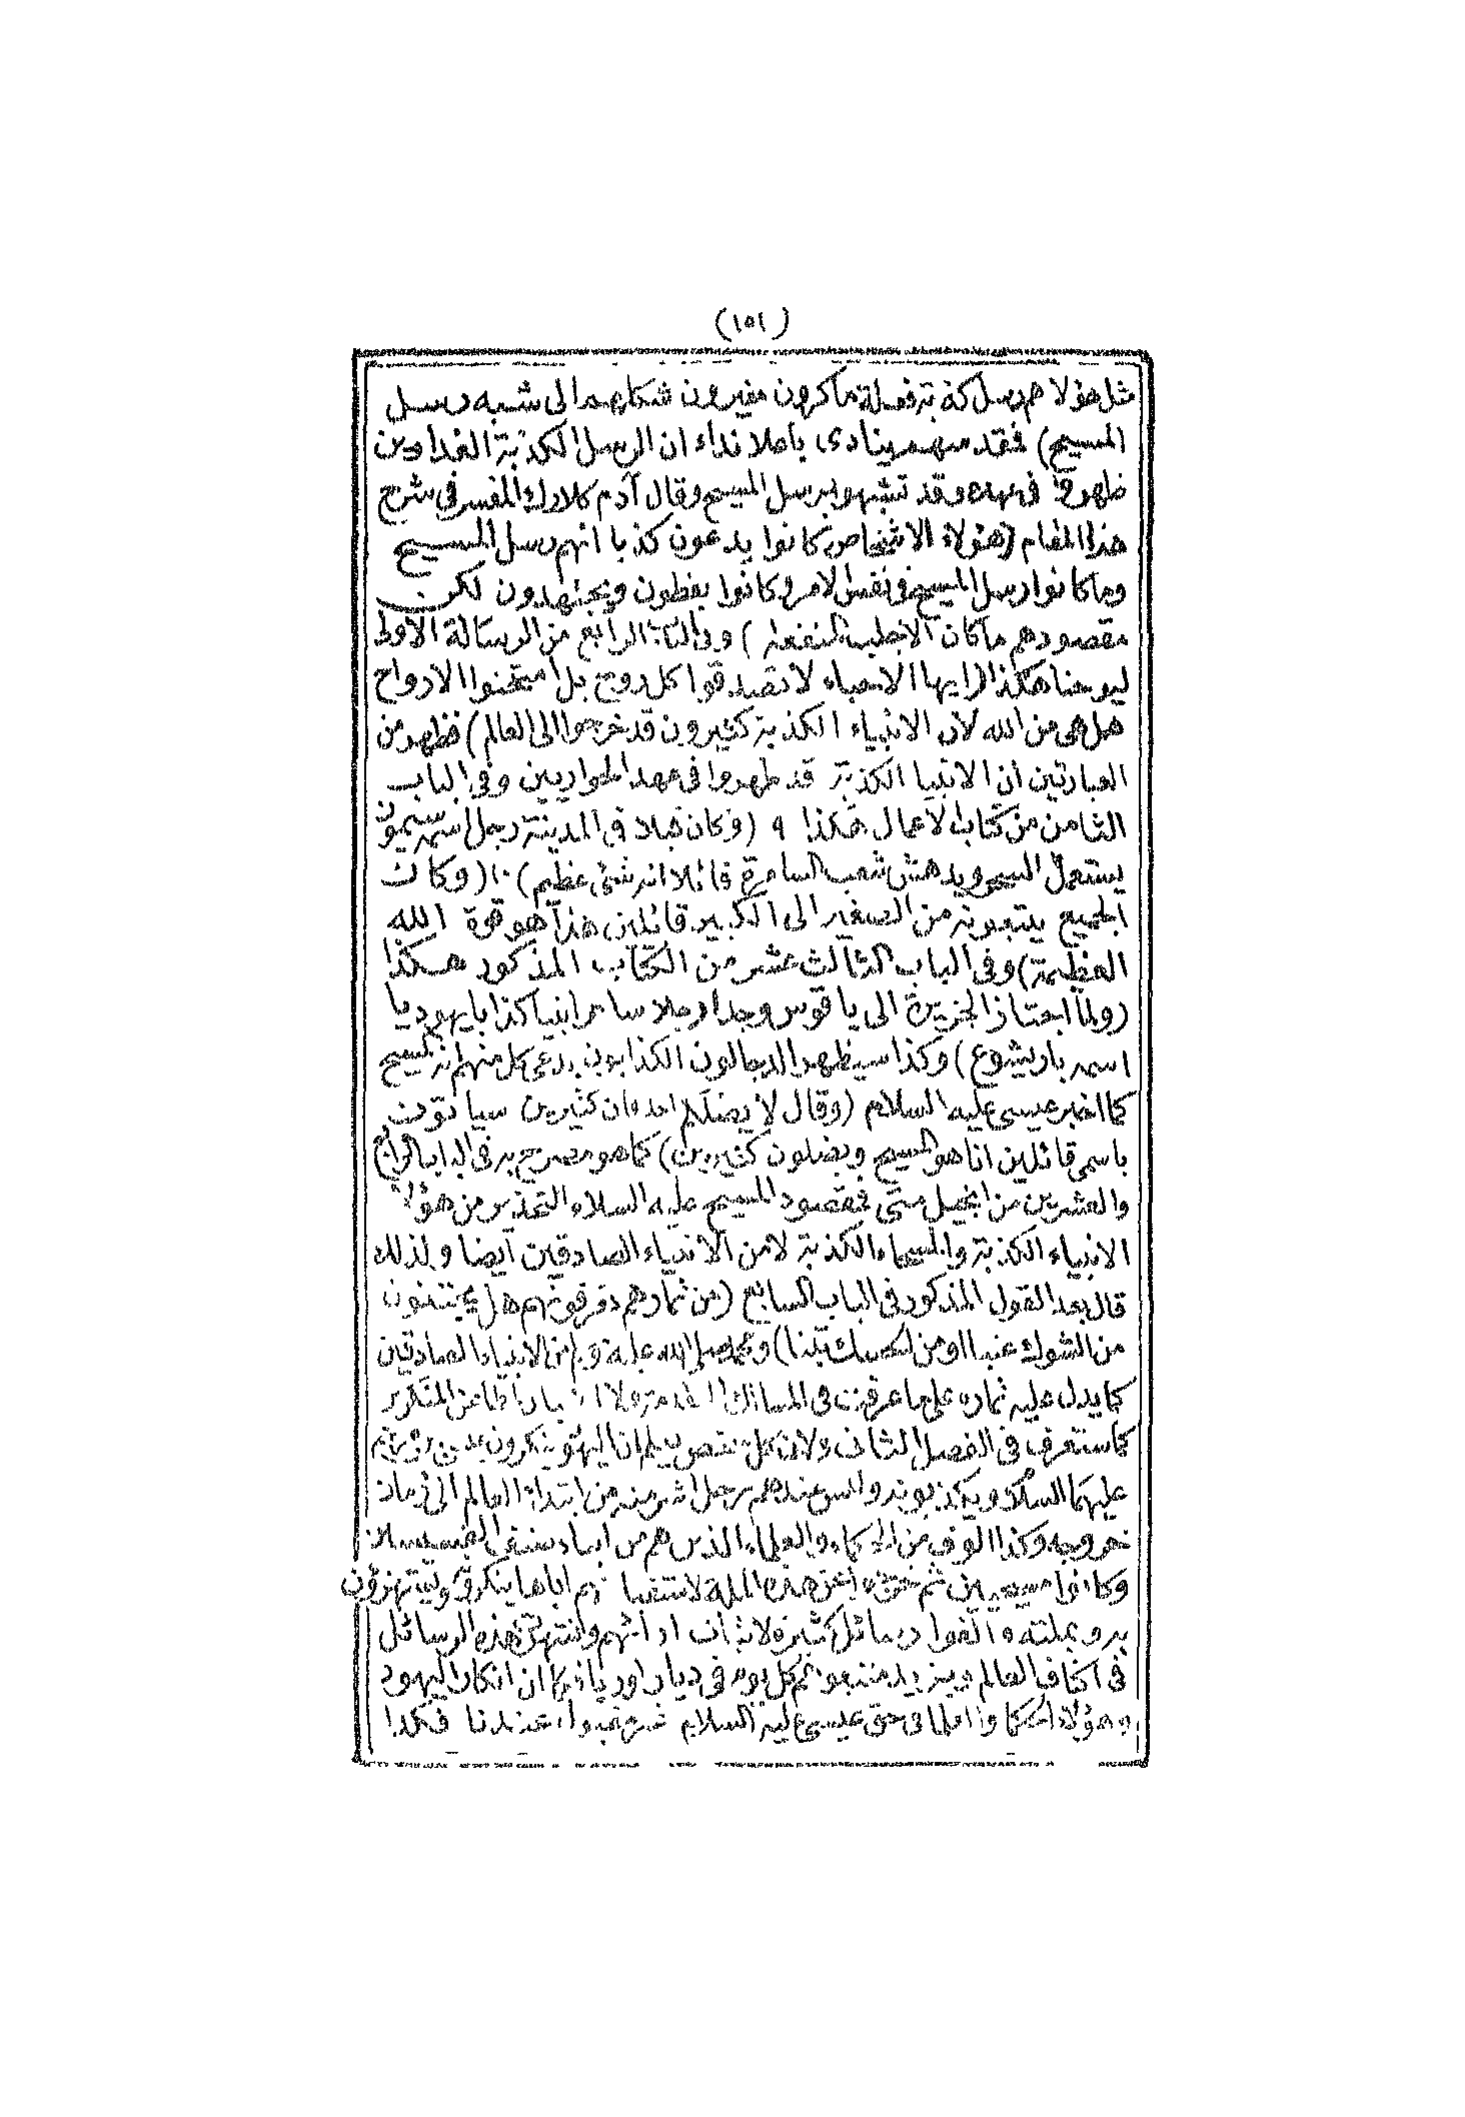 (١٥١)
مثل هؤلا هم رسل كذبة فعلة ماكرون مغيرون شكلهم الى شبه رسل
المسيح) فقد سهم ينادى باعلا نداء ان الرسل الكذبة الغدارين
ظهروا فى عهده وقد تشبهوا برسل المسيح وقال آدم كلارك المفسر فى شرح
هذا المقام (هؤلاء الاشخاص كانوا يدعون كذبا انهم رسل المسيح
وما كانوا رسل المسيح فى نفس الامر وكانوا يعظون ويجتهدون لكن
مقصودهم ما كان الا جلب المنفعة) وفى الباب الرابع من الرسالة الاولى
ليوحنا هكذا (ايها الاحباء لا تصدقوا كل روح بل امتحنوا الارواح
هل هى من الله لان الانبياء الكذبة كثيرون قد خرجوا الى العالم) فظهر من
العبارتين ان الانبيا الكذبة قد ظهروا فى عهد الحواريين وفى الباب
الثامن من كتاب الاعمال هكذا ٩ (وكان قبلا فى المدينة رجل اسمه سيمون
يستعمل السحر ويدهش شعب السامرة قائلا انه شئ عظيم) ١٠ (وكان
الجميع يتبعونه من الصغير الى الكبير قائلين هذا هو قوة الله
العظيمة) وفى الباب الثالث عشر من الكتاب المذكور هكذا
(ولما اجتاز الجزيرة الى يافوس وجدا رجلا ساحرا نبيا كذابا يهوديا
اسمه باريشوع) وكذا سيظهر الدجالون الكذابون يدعى كل منهم انه المسيح
كما اخبر عيسى عليه السلام (وقال لا يضلكم احد فان كثيرين سياتون
باسمى قائلين انا هو المسيح ويضلون كثيرين) كما هو مصرح به فى الباب الرابع
والعشرين من انجيل متى فمقصود المسيح عليه السلام التحذير من هؤلاء
الانبياء الكذبة والمسحاء الكذبة لا من الانبياء الصادقين ايضا ولذلك
قال بعد القول المذكور فى الباب السابع (من ثمارهم تعرفونهم هل يجتنون
من الشوك عنبا او من الحسك تينا) ومحمد صلى الله عليه وسلم من الانبياء الصادقين
كما يدل عليه ثماره على ما عرفت فى المسالك المتقدمة ولا اعتبار لمطاعن المنكرين
كما ستعرف فى الفصل الثانى ولان كل شخص يعلم ان اليهود ينكرون عيسى بن مريم
عليهما السلام ويكذبونه وليس عندهم رجل اشر منه من ابتداء العالم الى زمان
خروجه وكذا الوف من الحكماء والعلماء الذين هم من ابناء صنف القسيسين
وكانوا مسيحيين ثم خرجوا عن هذه الملة لاستقباحهم اياها ينكرونه ويستهزؤن
به وبملته والفوا رسائل كثيرة لاثبات ارائهم واشتهرت هذه الرسائل
فى اكناف العالم ويزيد متبعوهم كل يوم فى ديار اوربا فكما ان انكار اليهود
وهؤلاء الحكماء والعلماء فى حق عيسى عليه السلام غير مقبول عندنا فكذا